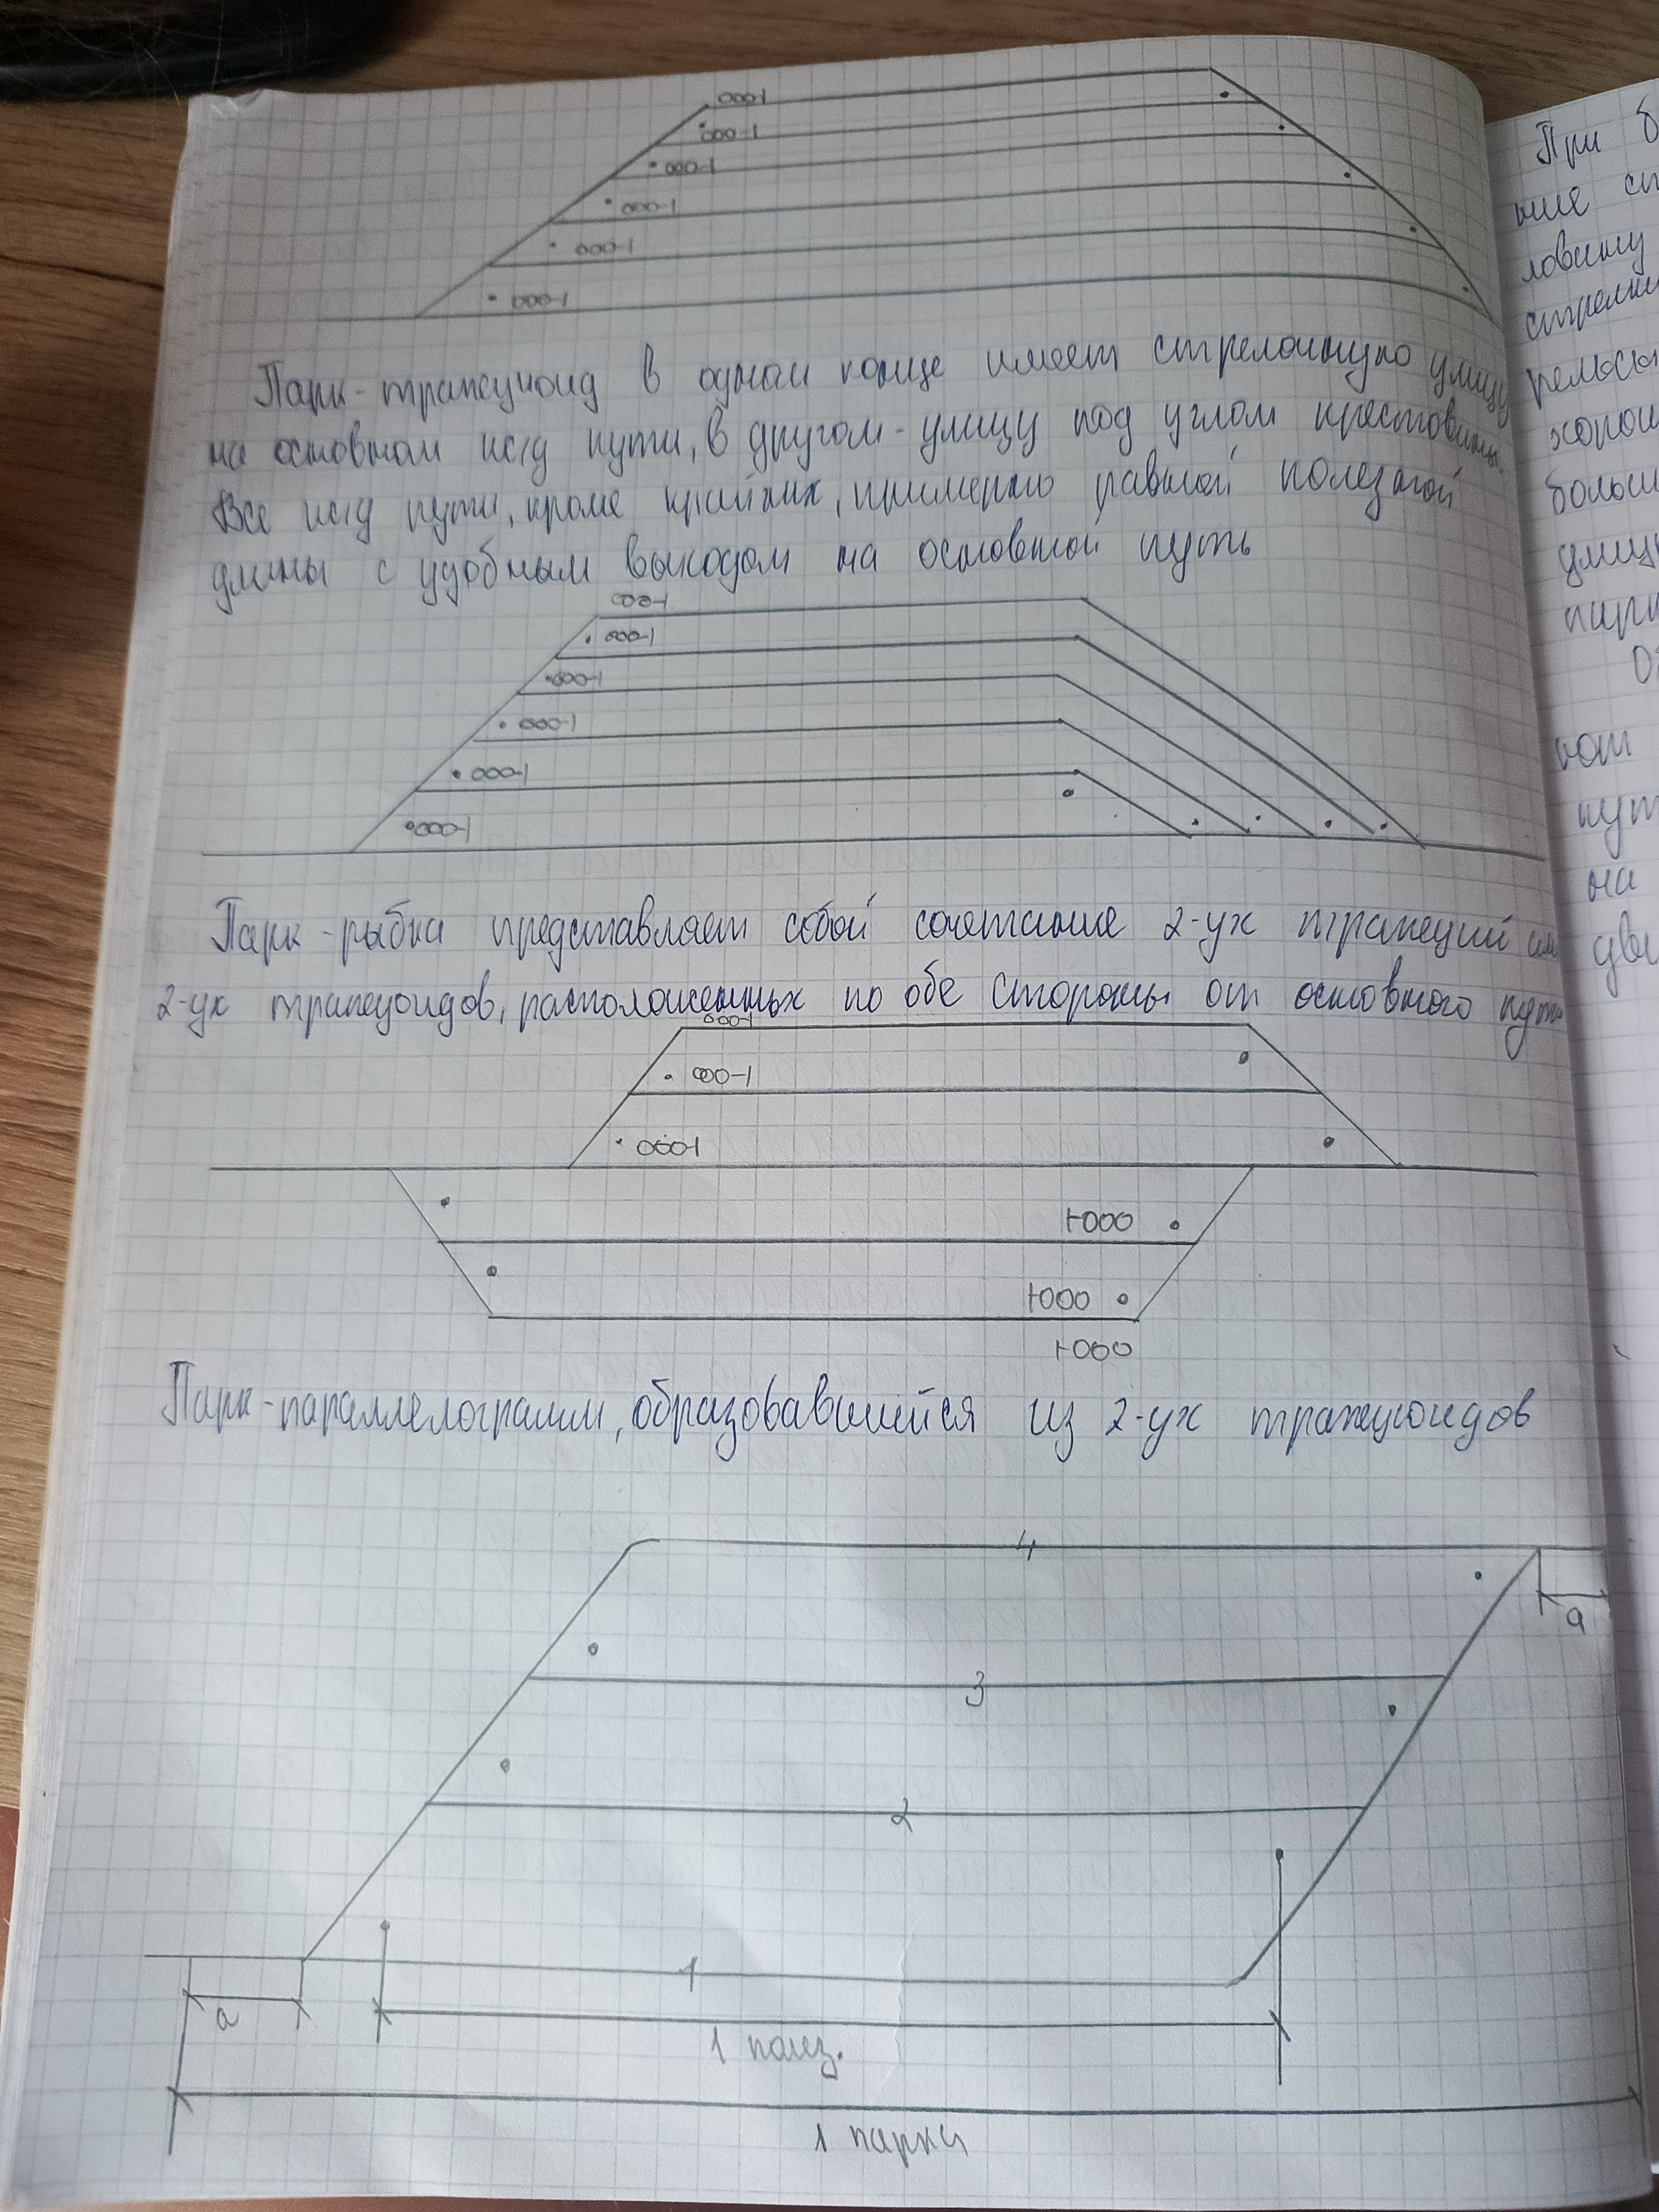 Парк-трапецоид в одном конце имеет стрелочную улицу
на основном ж/д пути, в другом - улицу под углом крестовины.
Все ж/д пути, кроме крайних, примерно равной полезной
длины с удобным выходом на основной путь
Парк-рыбка представляет собой сочетание 2-ух трапеций или
2-ух трапецоидов, расположенных по обе стороны от основного пути
Парк-параллелограмм, образовавшейся из 2-ух трапецоидов
4
а
3
2
1
а
1 полез.
1 парка
При б
ние
ловину
стрелки
рельсы
хорош
больш
улиц
парк
пут
на